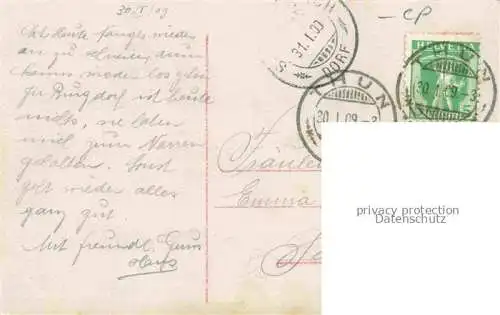 30.I/09
- CP
Erst heute fange wieder
an zu schreiben, denn
kanns wieder los gehn
für Burgdorf ist heute
nichts, sie haben
mich zum Narren
gehalten. Sonst
geht wieder alles
ganz gut.
Mit freundl. Gruss
Hans
31.I.09
DORF
THUN
30.I.09
HELVETIA
THUN
30.I.09
Fräulein
Emma
privacy protection
Datenschutz